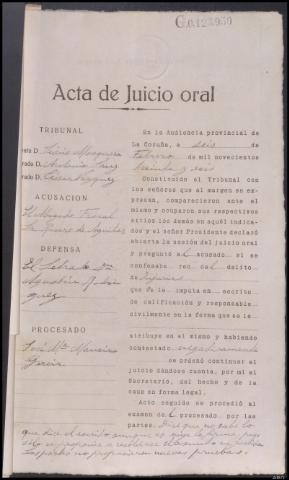 G.0.123,950
Acta de Juicio oral
TRIBUNAL
D. Luis Mosquera
D. Antonio
D. César Vázquez
ACUSACION
El Abogado Fiscal
DEFENSA
El Letrado Dn
Agustín
PROCESADO
José Mª
García
En la Audiencia provincial de
La Coruña, a seis de
Febrero de mil novecientos
treinta y seis
Constituido el Tribunal con
los señores que al margen se ex-
presan, comparecieron ante el
mismo y ocuparon sus respectivos
sitios los demás en aquél indica-
dos y el señor Presidente declaró
abierta la sesión del juicio oral
y preguntó al acusado si se
confesaba reo del delito
de Injurias
que se le imputa en escrito
de calificación y responsable
civilmente en la forma que se le
atribuye en el mismo y habiendo
contestado negativamente
se ordenó continuar el
juicio dándose cuenta, por mi el
Secretario, del hecho y de la
causa en forma legal.
Acto seguido se procedió al
examen del procesado, por las
partes. Dice que
que dice el escrito aunque es suya la firma, pues
sólo
Las partes no propusieron nuevas pruebas.